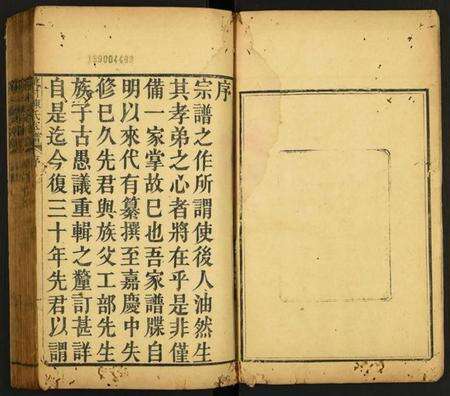 序
宗譜之作所謂使後人油然生
其孝弟之心者將在乎是非僅
備一家掌故巳也吾家譜牒自
明以來代有纂撰至嘉慶中失
修巳久先君與族父工部先生
族子古愚議重輯之釐訂甚詳
自是迄今復三十年先君以謂